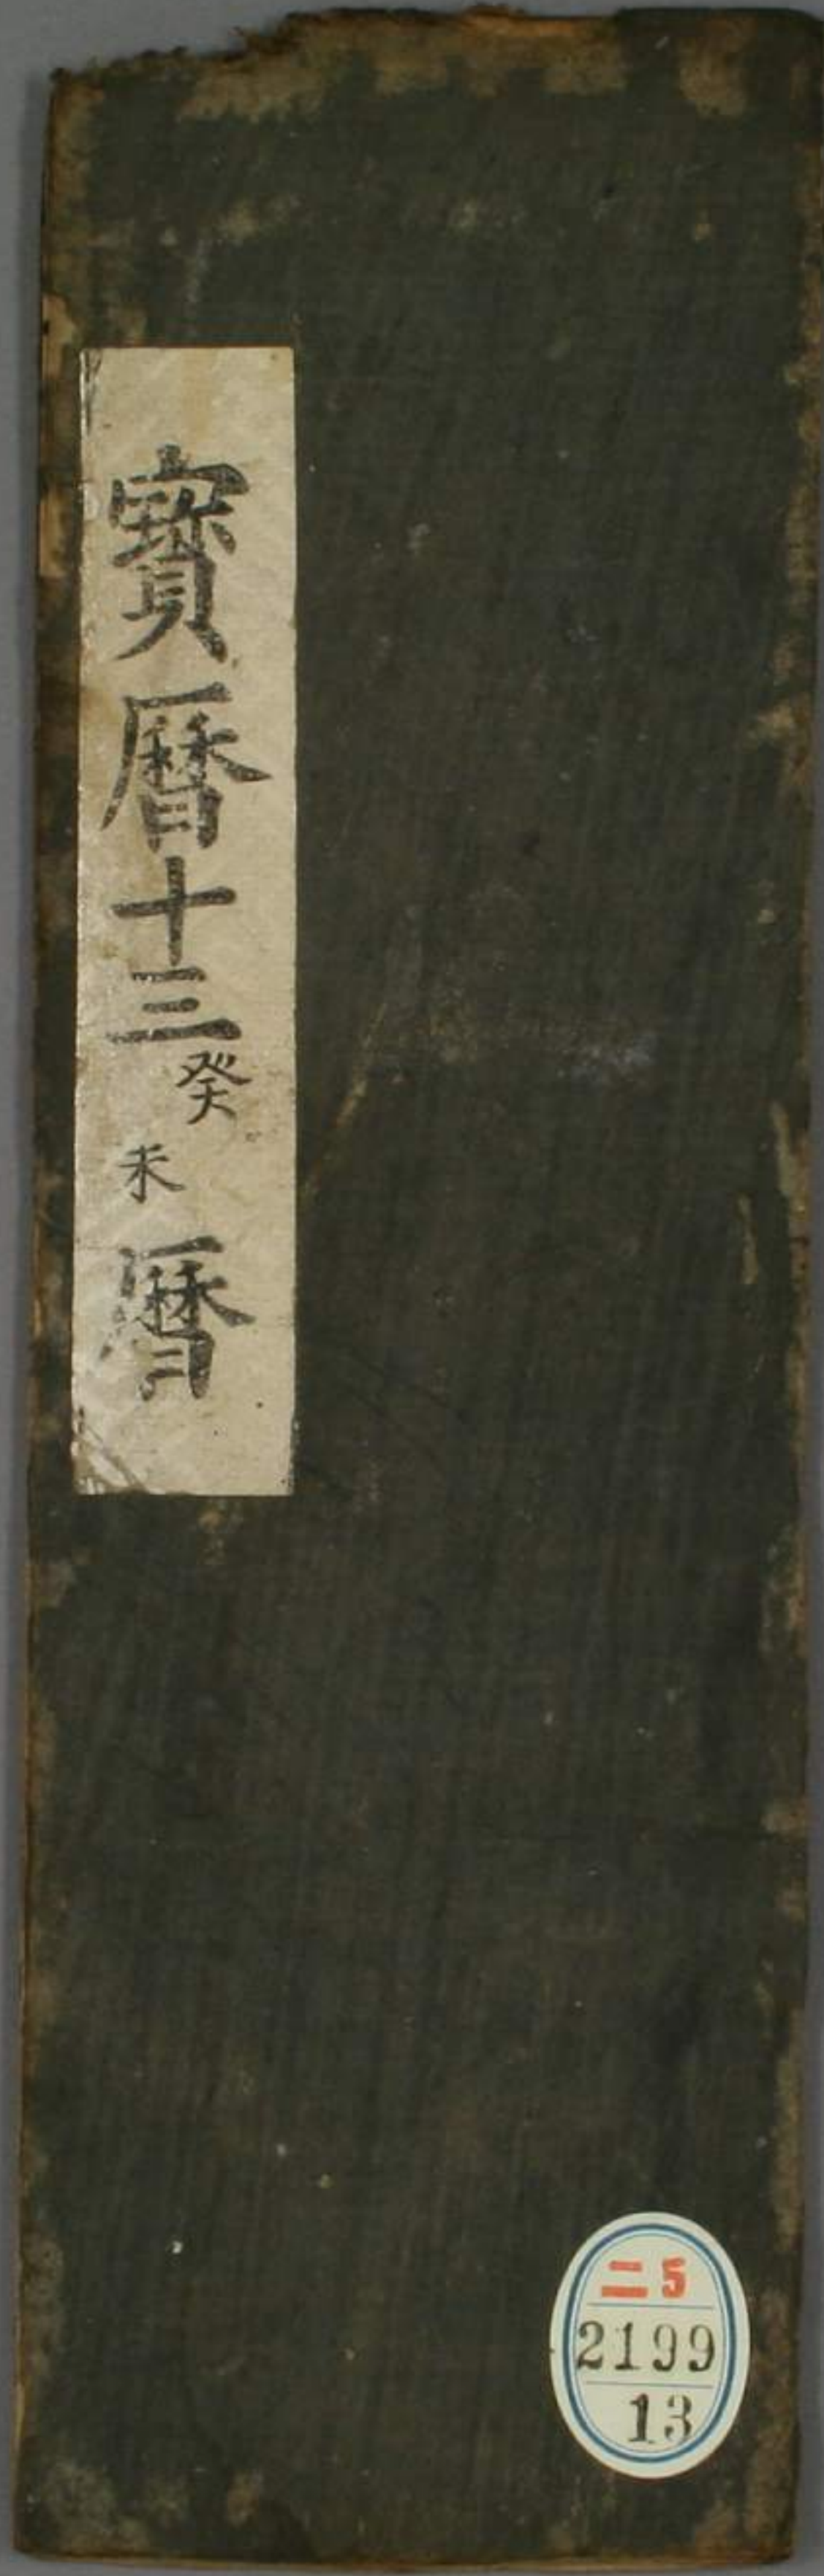 寳暦十三癸未暦
二5
2199
13